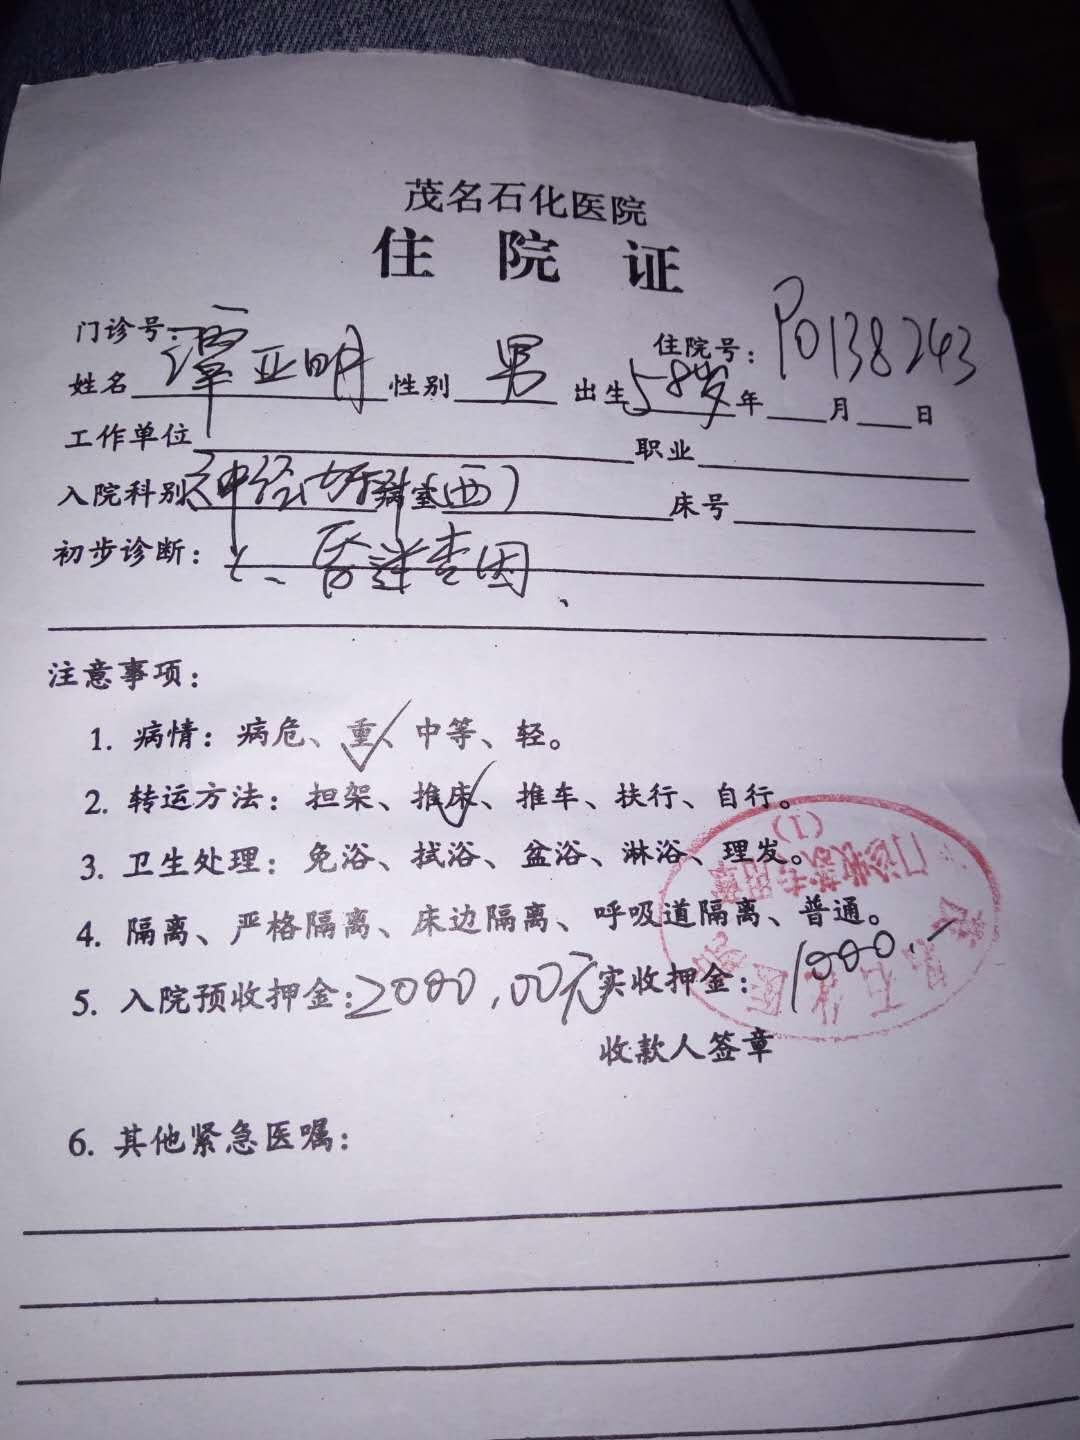 茂名石化医院
住院证
门诊号: 住院号: P0138243
姓名 谭亚明 性别 男 出生 58岁 年 月 日
工作单位 职业
入院科别 神经内科 病室(西) 床号
初步诊断: 1、昏迷查因、
注意事项:
1. 病情: 病危、重、中等、轻。
2. 转运方法: 担架、推床、推车、扶行、自行。
3. 卫生处理: 免浴、拭浴、盆浴、淋浴、理发。
4. 隔离、严格隔离、床边隔离、呼吸道隔离、普通。
5. 入院预收押金: 2000.00元 实收押金: 1000.
收款人签章
6. 其他紧急医嘱:
茂名石化医院
门诊收款专用章
(1)